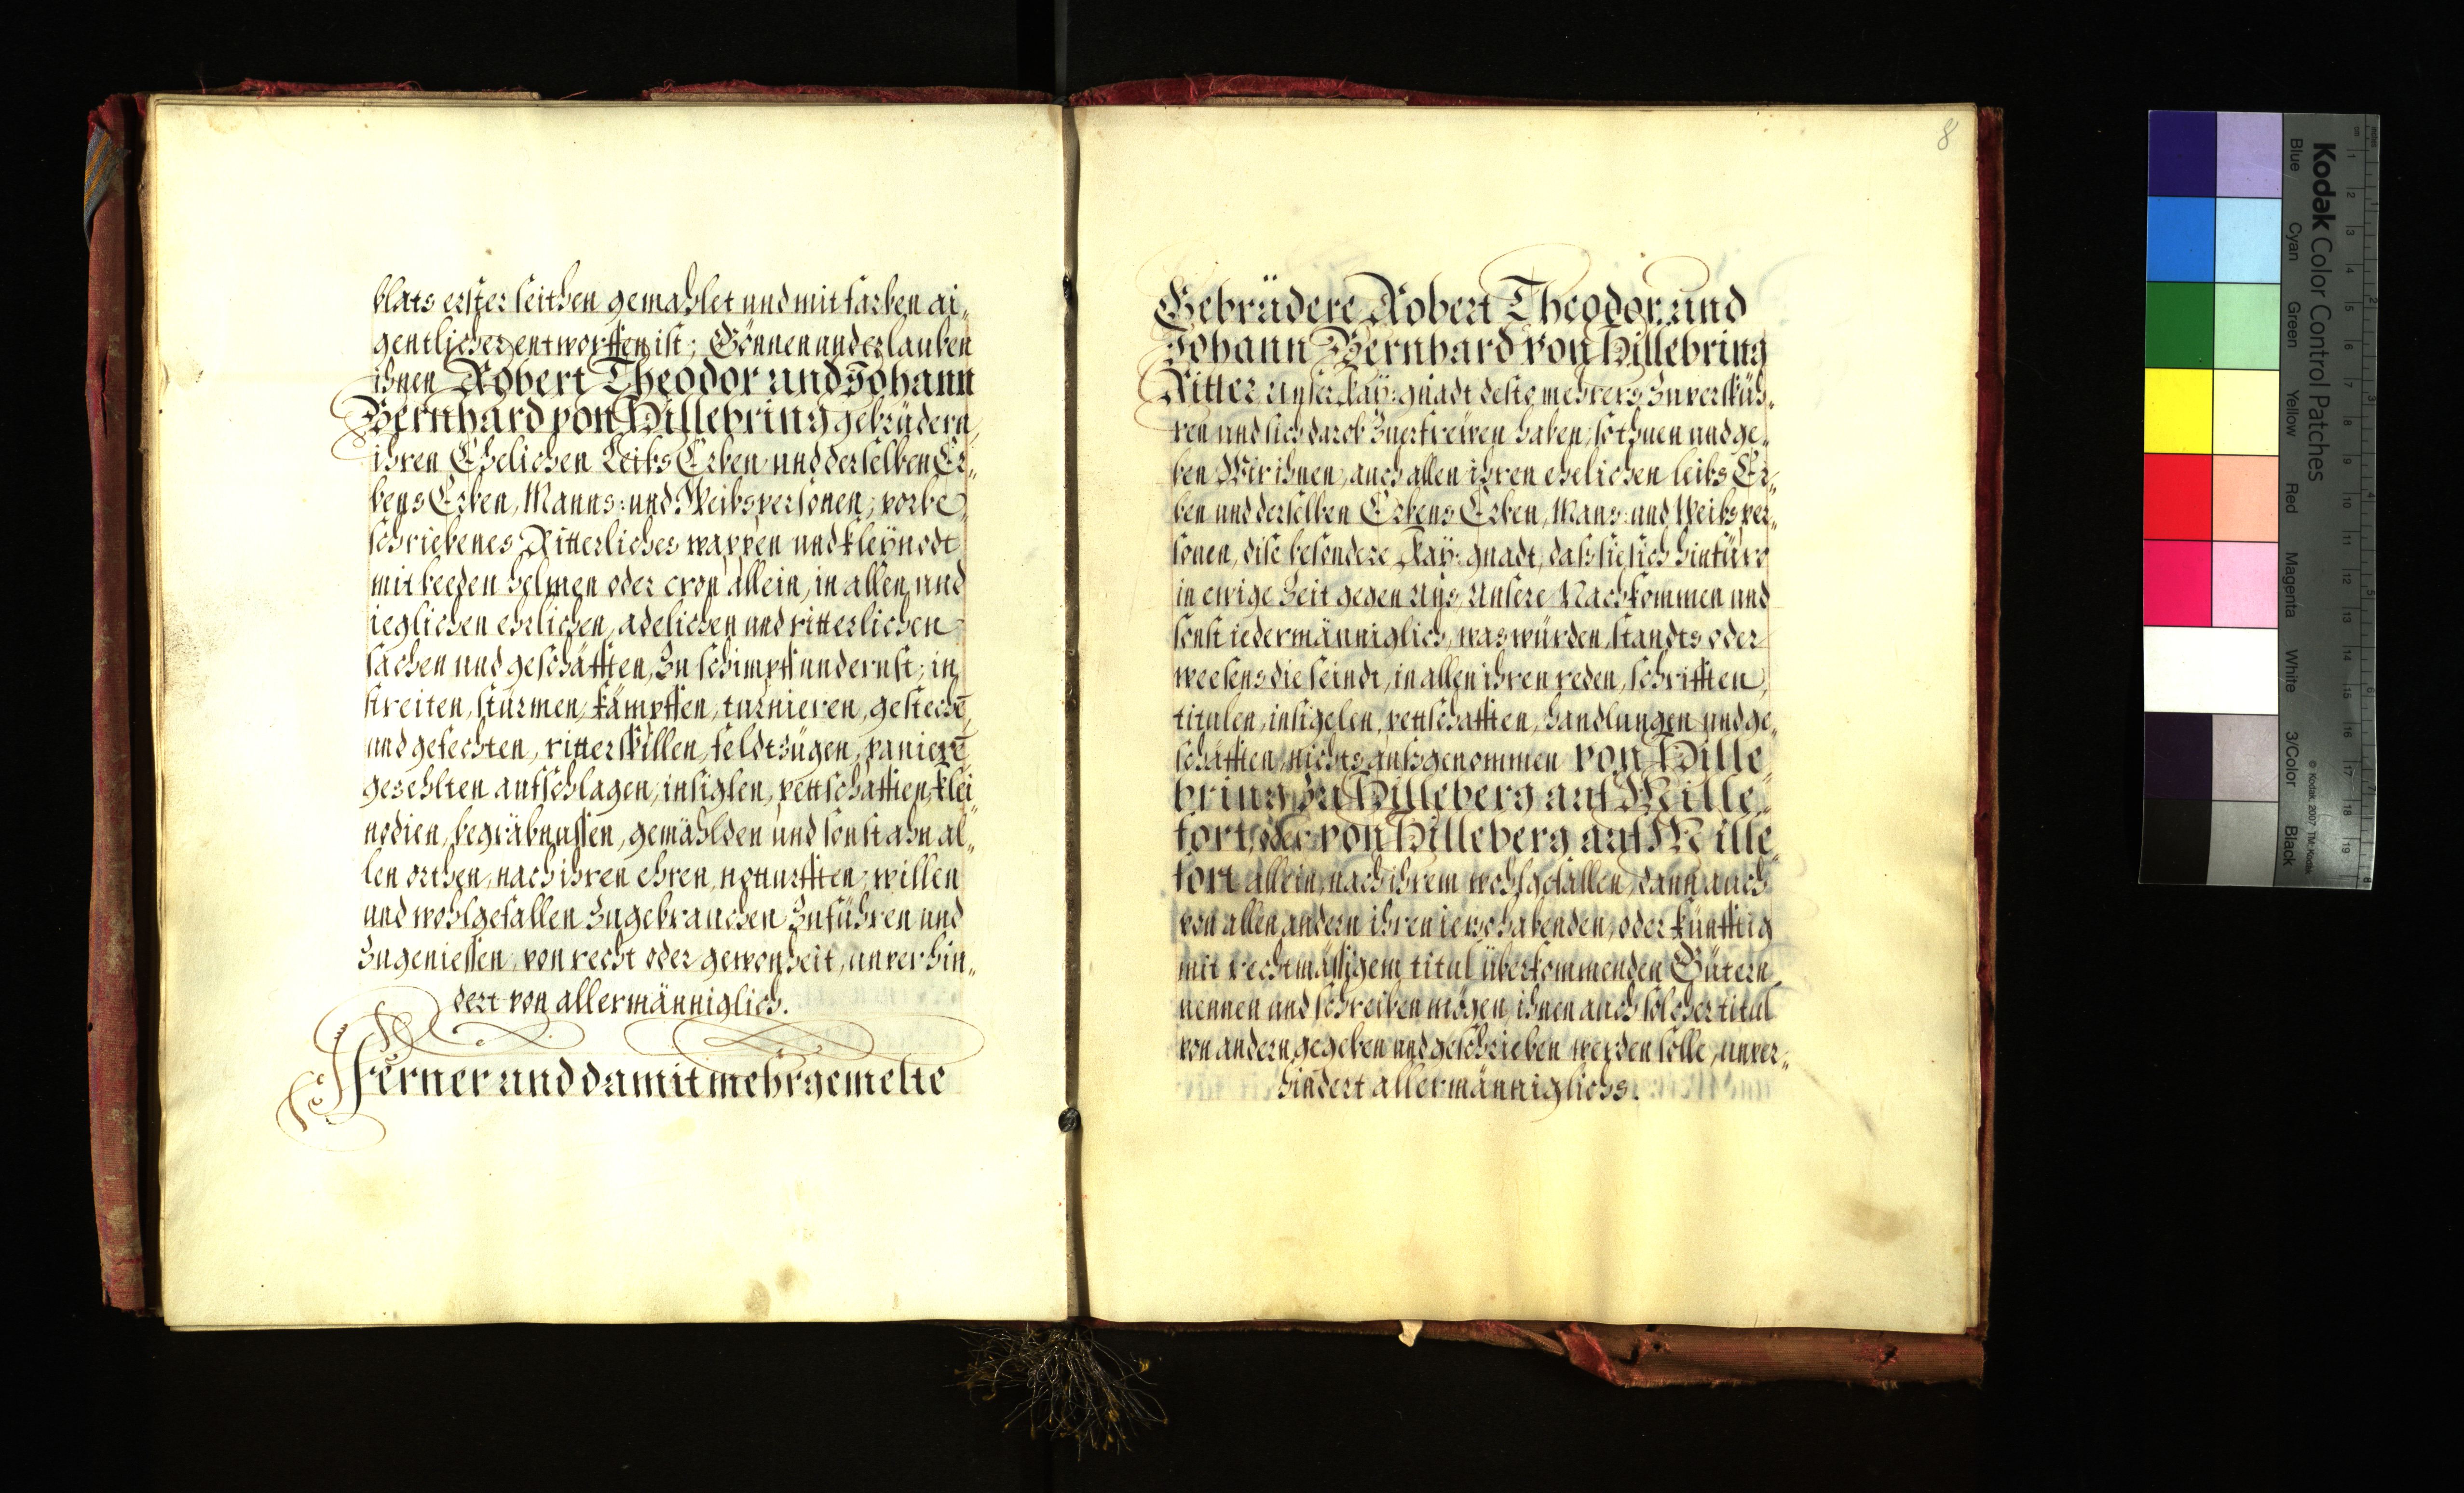 blats erster seithen gemahlet und mit farben ai„
gentlicher entworffen ist; Gönnen und erlauben
ihnen Robert Theodor und Johann
Bernhard von Hillebring gebrüdern,
ihren Ehelichen Leibs Erben und derselben Er„
bens Erben, Manns: und Weibspersonen, vorbe„
schriebenes Ritterliches wappen und kleÿnodt
mit beeden helmen oder cron allein, in allen und
ieglichen ehrlichen, adelichen und ritterlichen
sachen und geschäfften, zu schimpff und ernst, in
streiten, stürmen, kämpffen, turnieren, gesteche̅,
und gefechten, ritterspillen, feldtzügen, paniere̅,
gezehlten aufschlagen, insiglen, pettschafften, klei„
nodien, begräbnussen, gemählden und sonst ahn al„
len orthen, nach ihren ehren, notturfften, willen
und wohlgefallen zugebrauchen zuführen und
zugeniessen, von recht oder gewonheit, unverhin„
dert von allermänniglich.
Ferner und damit mehrgemelte
8
Gebrüdere Robert Theodor und
Johann Bernhard von Hillebring
Ritter Unser kaÿ: gnadt desto mehrers zuverspüh„
ren und sich darob zuerfrewen haben; so thuen und ge„
ben Wir ihnen, auch allen ihren ehelichen leibs Er„
ben und derselben Erbens Erben, Mans: und Weibsper„
sonen, dise besondere Kaÿ: gnadt, dass sie sich hinfüro
in ewige Zeit gegen Uns, Unsere Nachkommen und
sonst iedermänniglich, was würden, standts oder
weesens die seindt, in allen ihren reden, schrifften,
titulen, insigelen, pettschafften, handlungen und ge„
schäfften, nichts aussgenommen von Hille„
bring zu Hilleberg auf Mille„
fort, oder von Hilleberg auf Mille„
fort allein, nach ihrem wohlgefallen, dann auch
von allen andern ihren iezo habenden, oder künfftig
mit rechtmässigem titul überkommenden Gütern
nennen und schreiben mögen, ihnen auch solcher titul
von andern gegeben und geschrieben werden solle, unver„
hindert allermänniglichs.
Kodak Color Control Patches
Blue Cyan Green Yellow Red Magenta White 3/Color Black
© Kodak, 2007 TM: Kodak